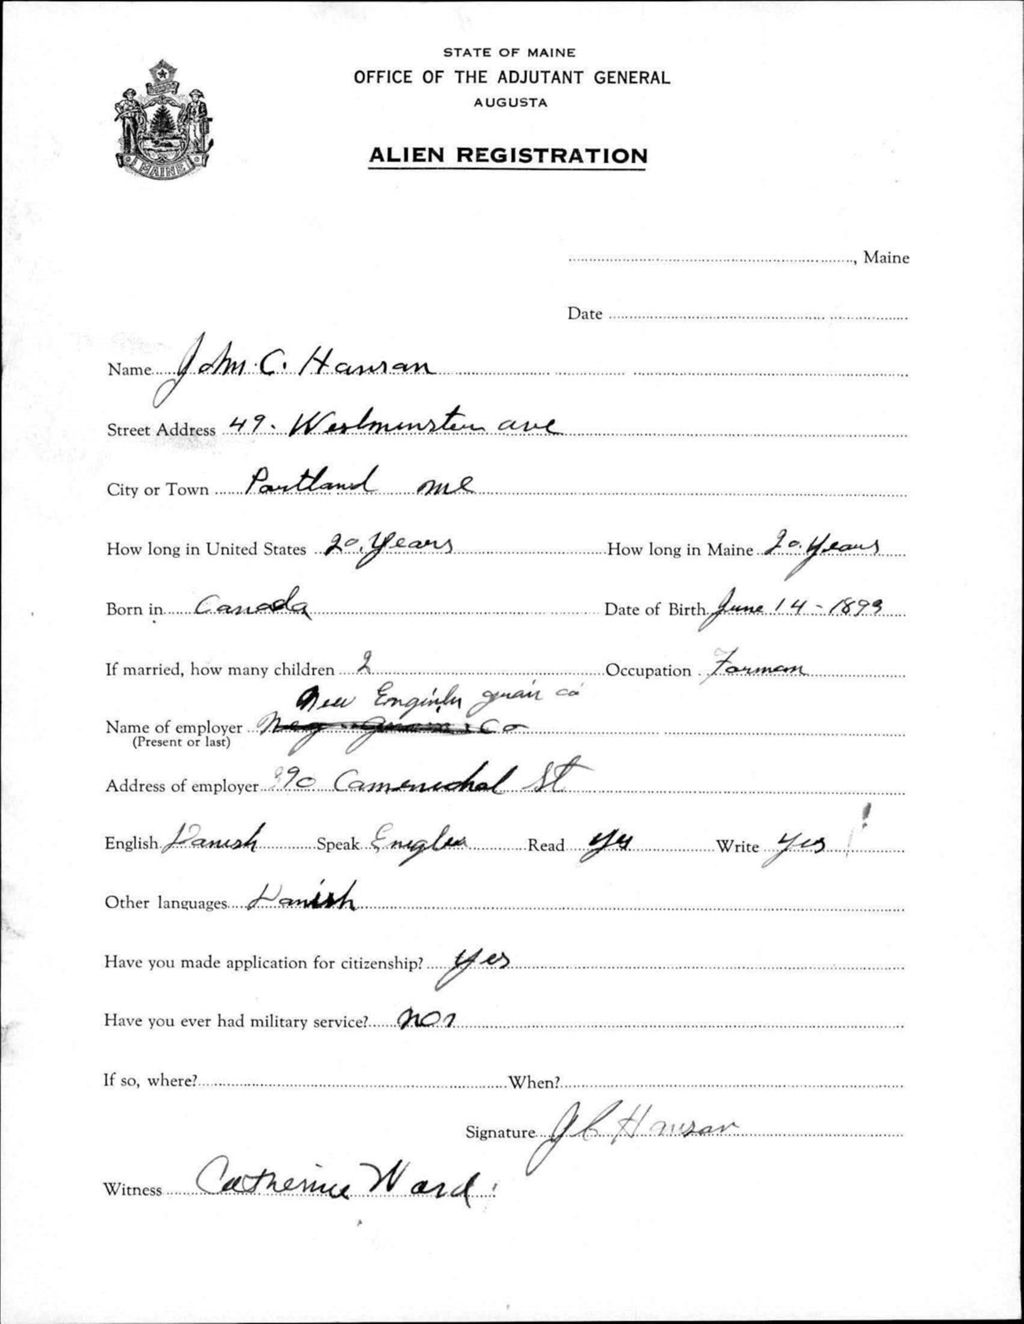 STATE OF MAINE
OFFICE OF THE ADJUTANT GENERAL
AUGUSTA
ALIEN REGISTRATION
MAINE
, Maine
Date
Name John C. Hansan
Street Address 49. Westminster ave
City or Town Portland me
How long in United States 20. Years How long in Maine 20. Years
Born in Canada Date of Birth June 14 - 1899
If married, how many children 2 Occupation Forman
New co
Name of employer Co
(Present or last)
Address of employer St
English Danish Speak Read yes Write yes
Other languages Danish
Have you made application for citizenship? yes
Have you ever had military service?
If so, where? When?
Signature J C Hansan
Witness Catherine Ward